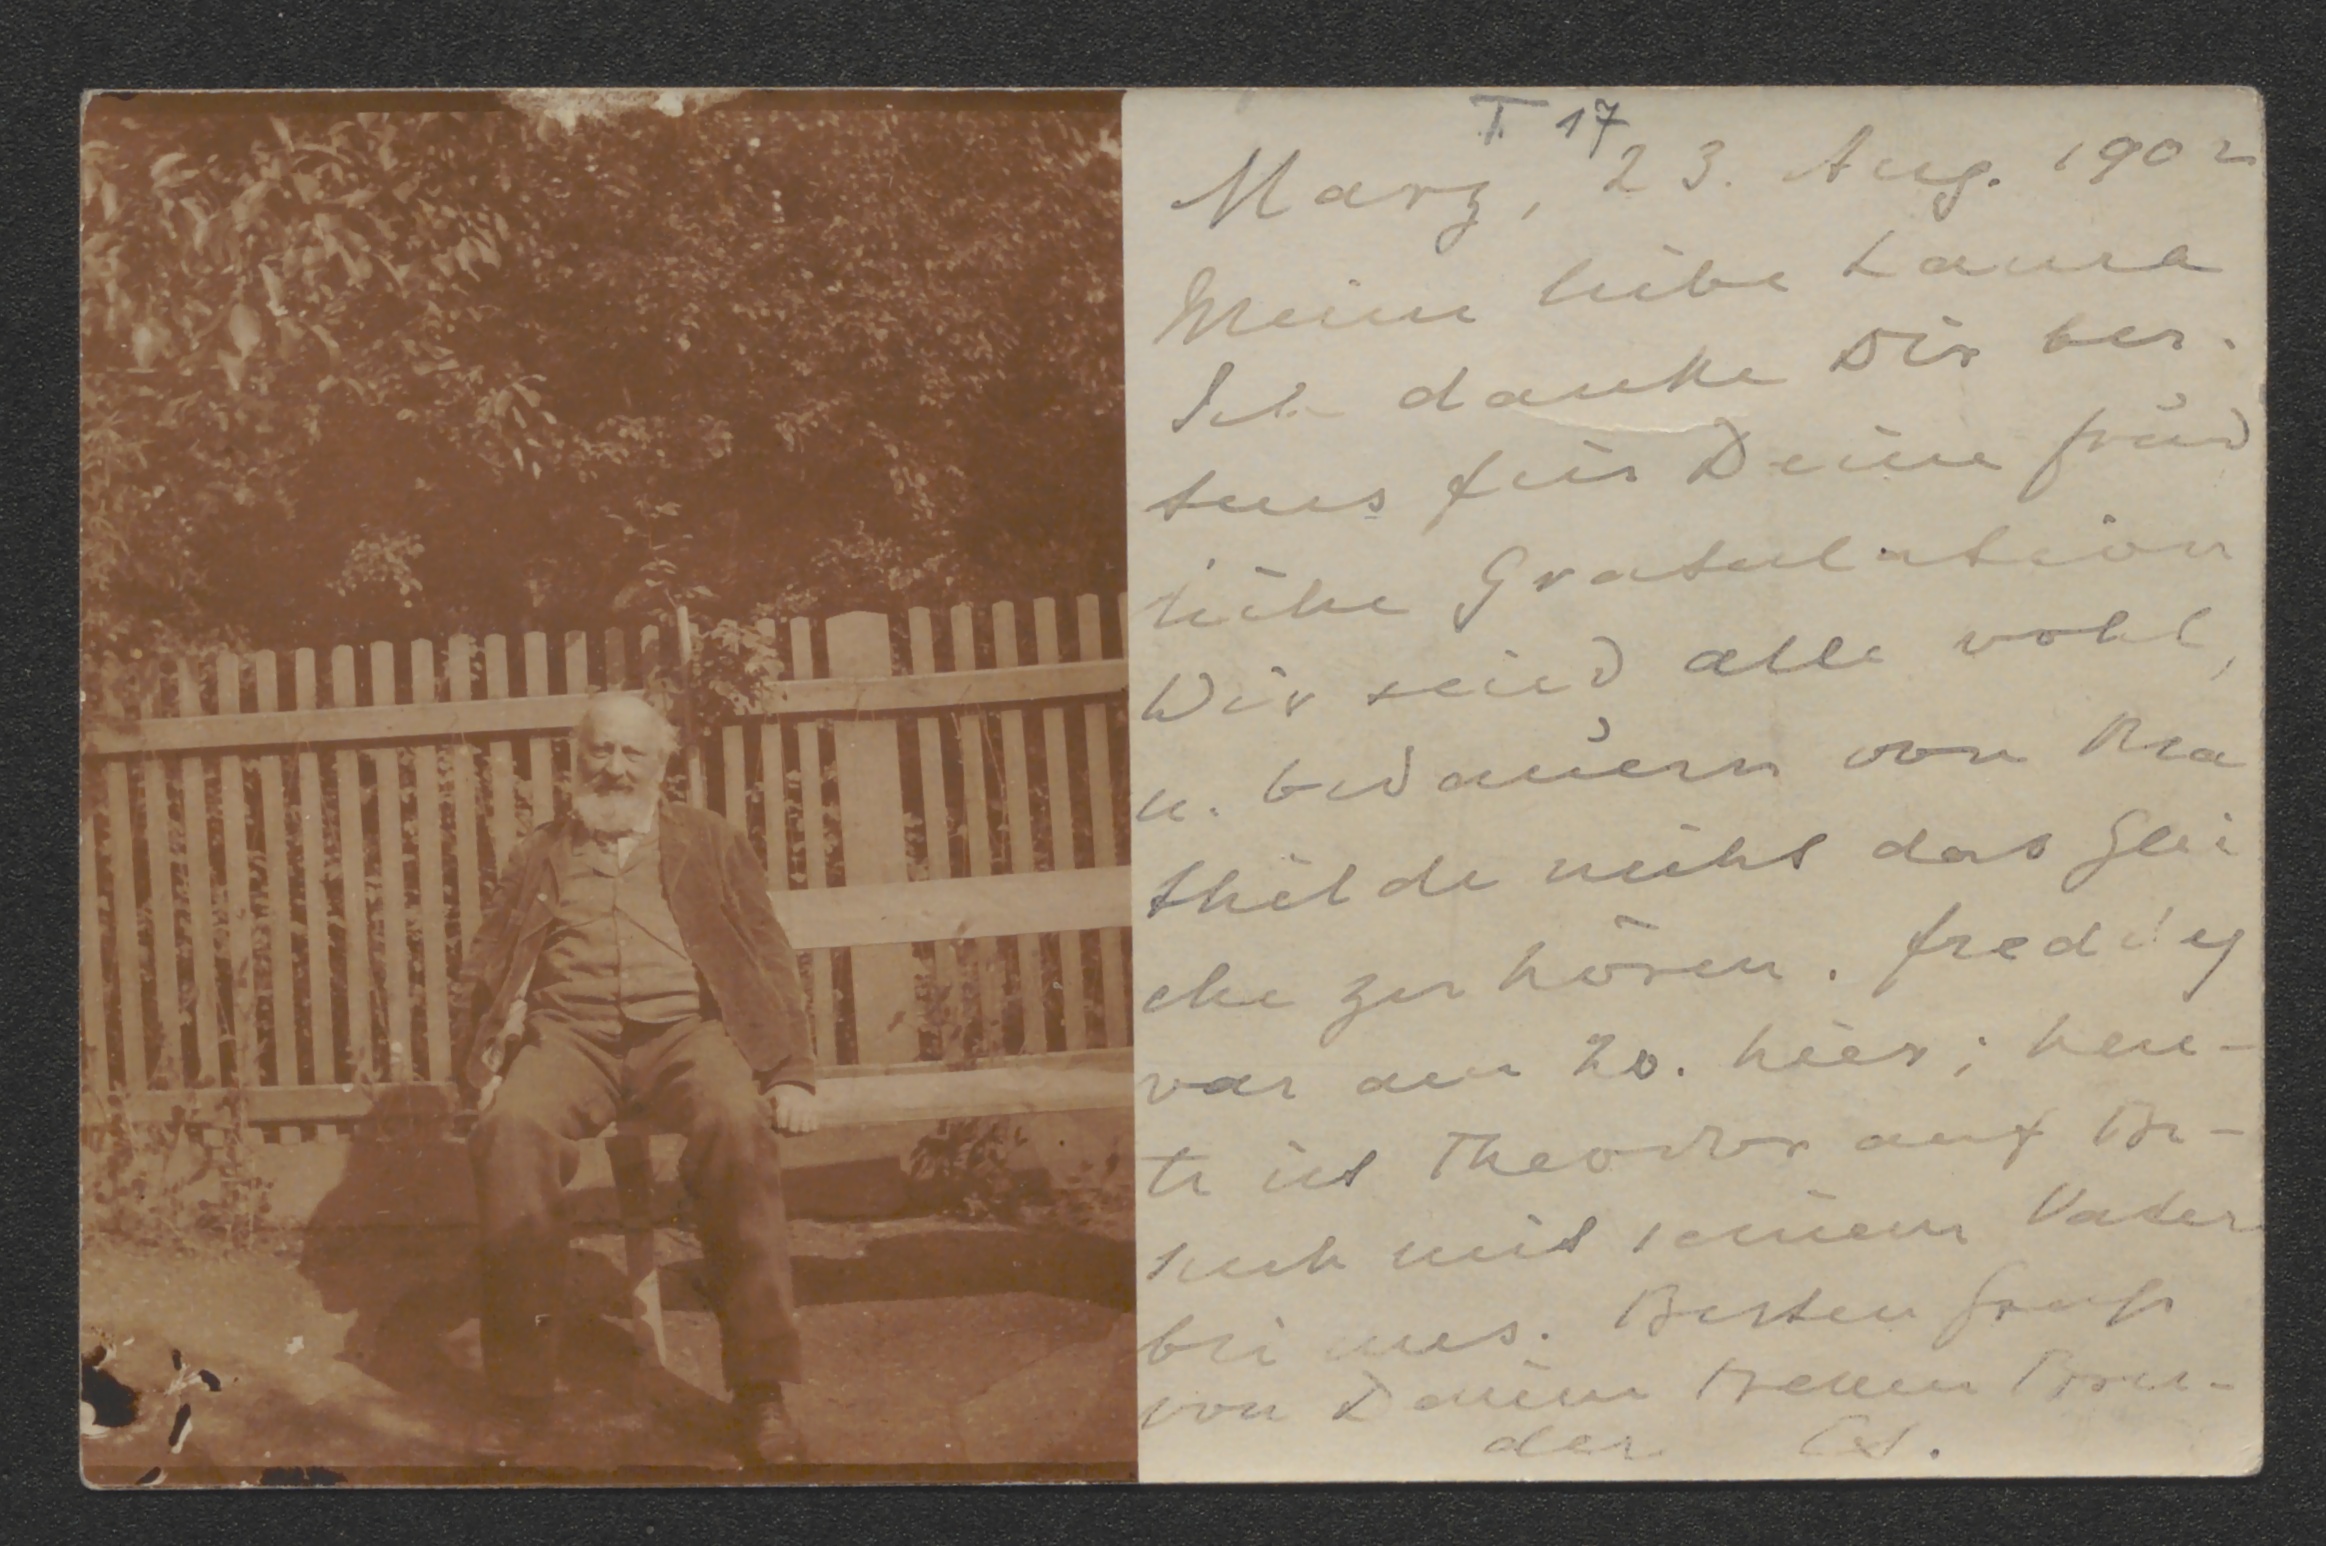 I 17
Marz, 23. Aug. 1902
Meine liebe Laura
Ich danke Dir bes.
tens für Deine fräud
liche Gratulation
Wir seind alle vohl,
u. bedauern von Ma
thilde nicht das Glei
che zu hören. Freddey
var am 20. hier; heu-
te ist Theodor auf Be-
such mit seinem Vater
bei uns. Besten Gruß
von Deinem treuen Bru-
der